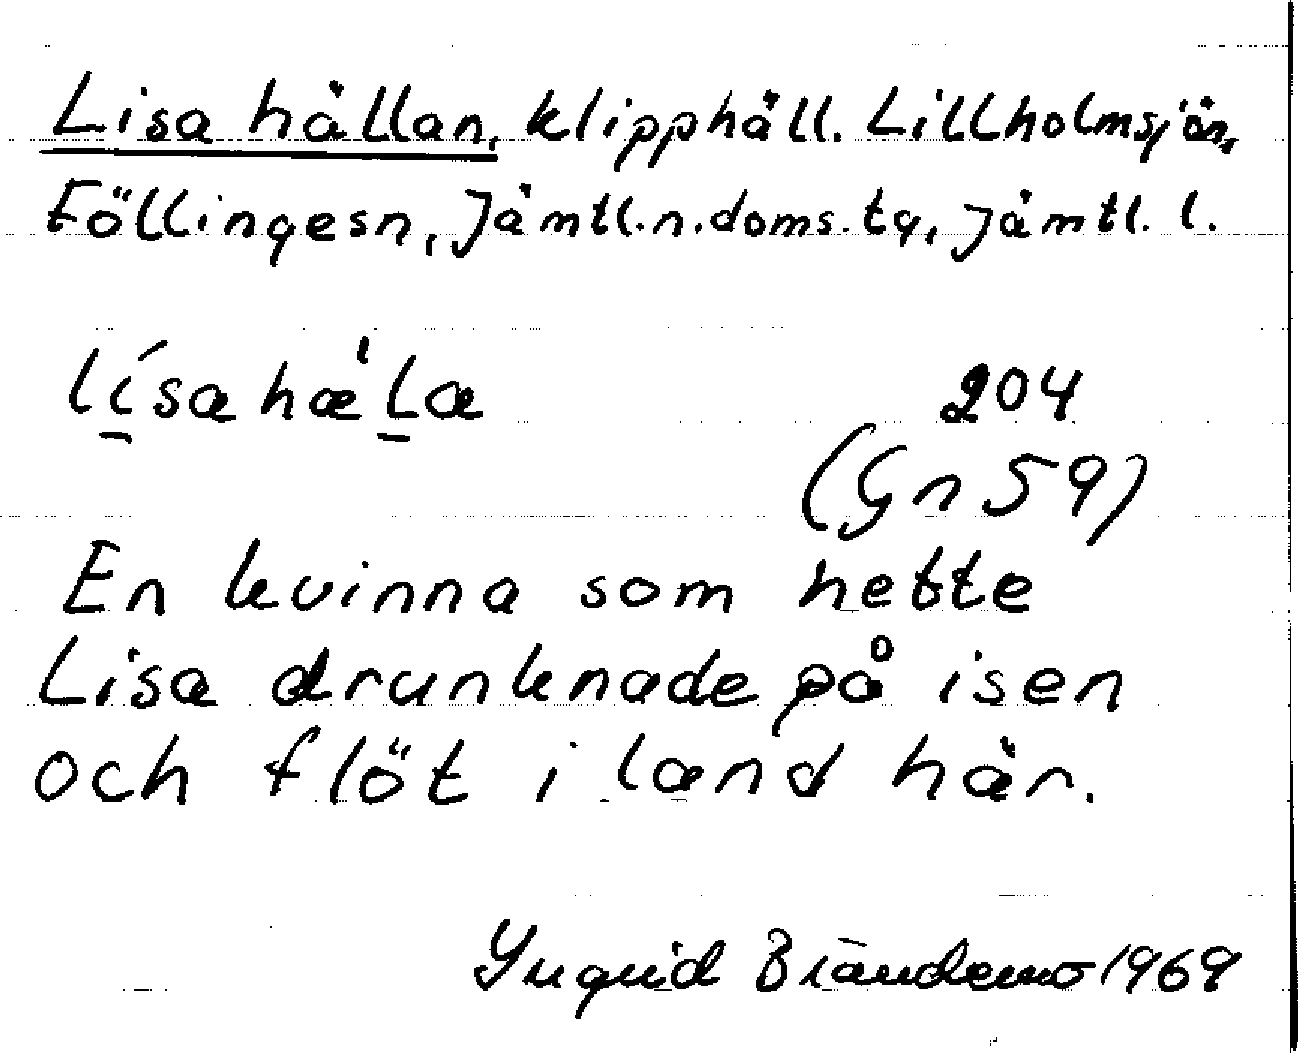 Lisa hällan, klipphäll. Lillholmsjön,
Föllingesn, Jämtl.n.doms.tg, Jämtl. l.
lísahæ̀La
204
(Gn 59)
En kvinna som hette
Lisa drunknade på isen
och flöt i land här.
Yngrid Brändemo 1969